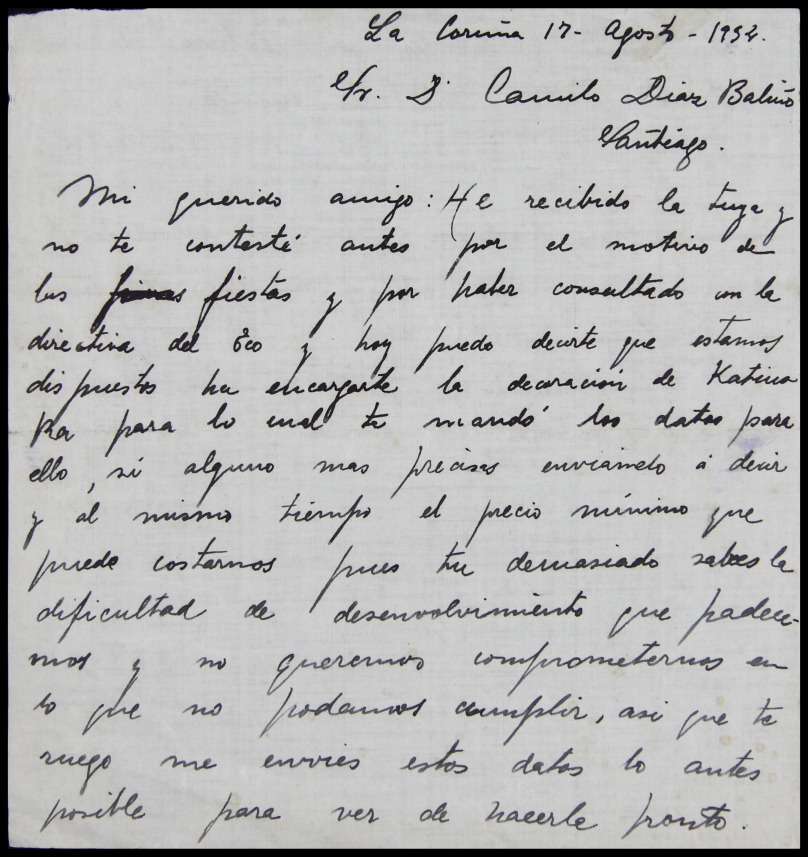 La Coruña 17- Agosto - 1932.
Sr. D. Camilo Diaz Baliño
Santiago.
Mi querido amigo: He recibido la tuya y
no te contesté antes por el motivo de
las fiestas y por haber consultado con la
directiva del Eco y hoy puedo decirte que estamos
dispuestos ha encargarte la decoración de Katius
ka para lo cual te mandó los datos para
ello, si alguno mas precisas envíamelo á decir
y al mismo tiempo el precio mínimo que
puede costarnos pues tu demasiado sabes la
dificultad de desenvolvimiento que padece-
mos y no queremos comprometernos en
lo que no podamos cumplir, asi que te
ruego me envies estos datos lo antes
posible para ver de hacerle pronto.